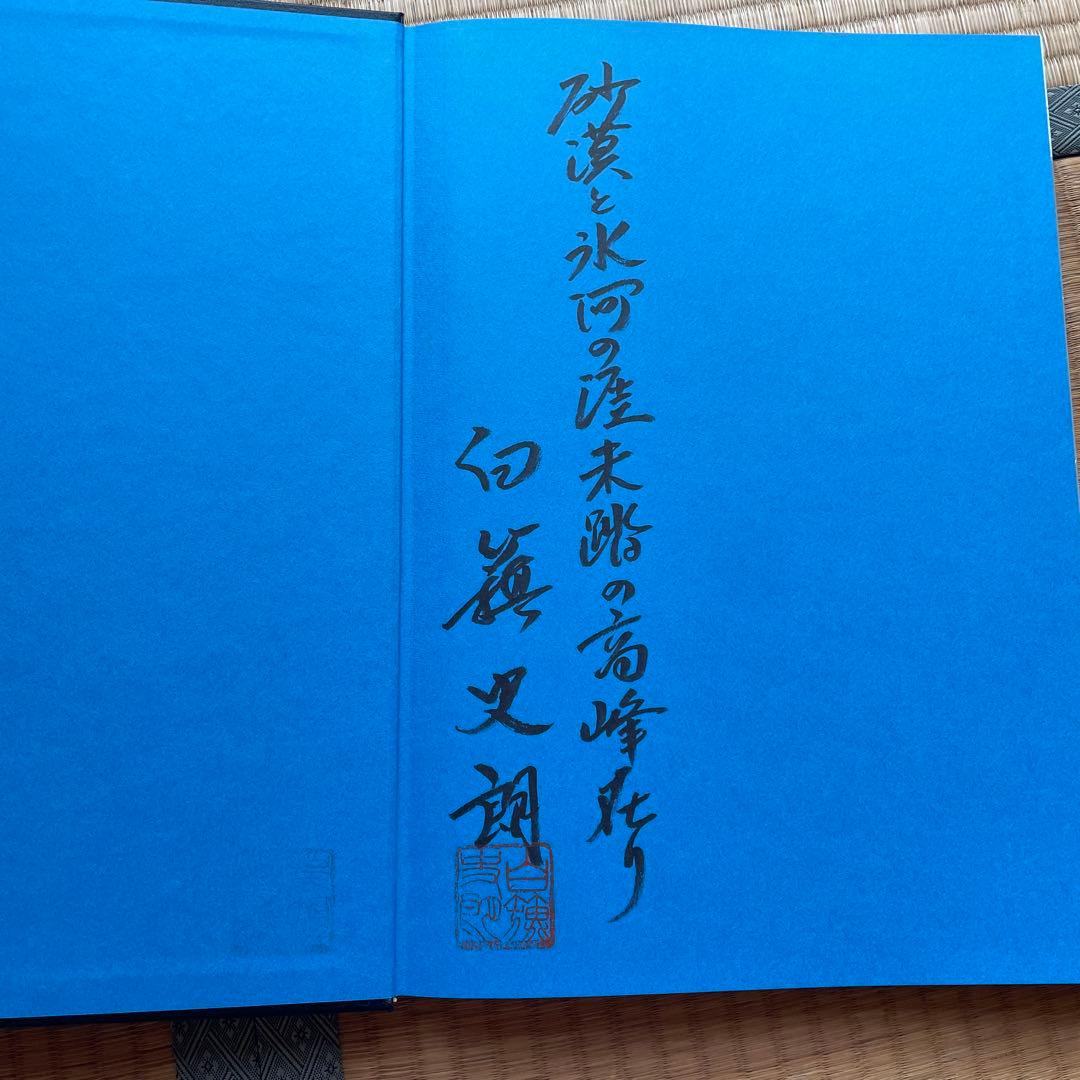 砂漠と氷河の涯未踏の高峰在り
白籏史朗